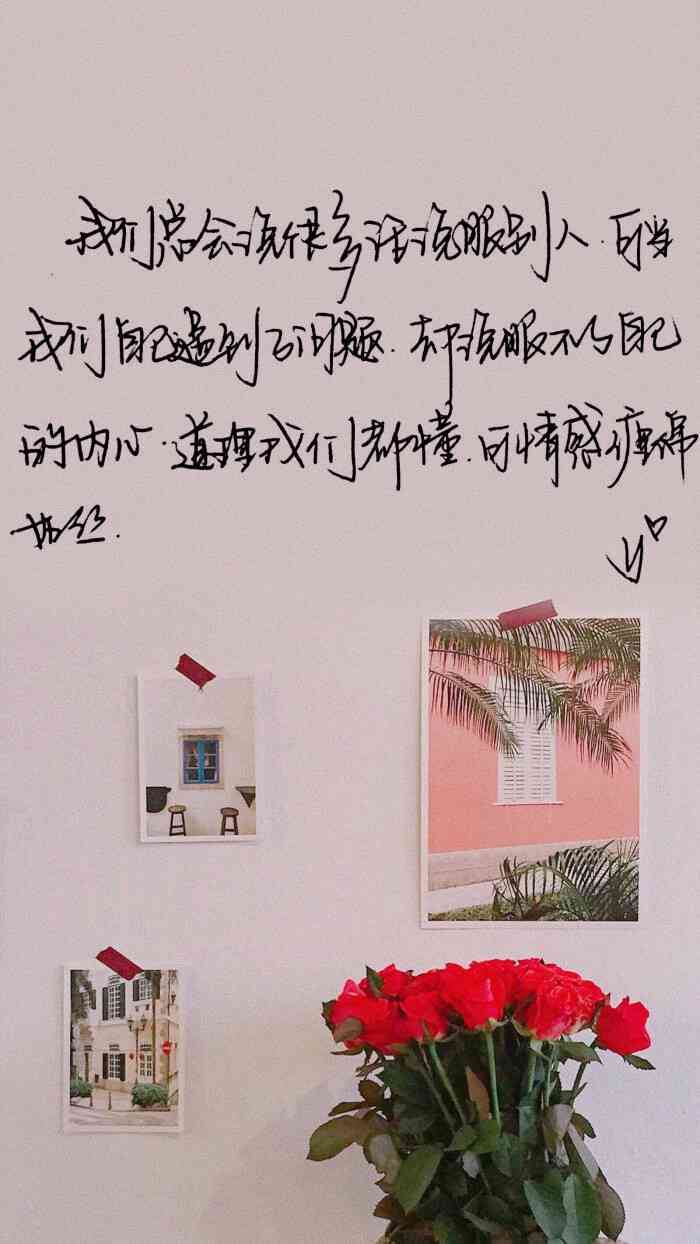 我们总会说很多话说服别人.可当
我们自己遇到了问题.却说服不了自己
的内心.道理我们都懂.可情感
如丝.